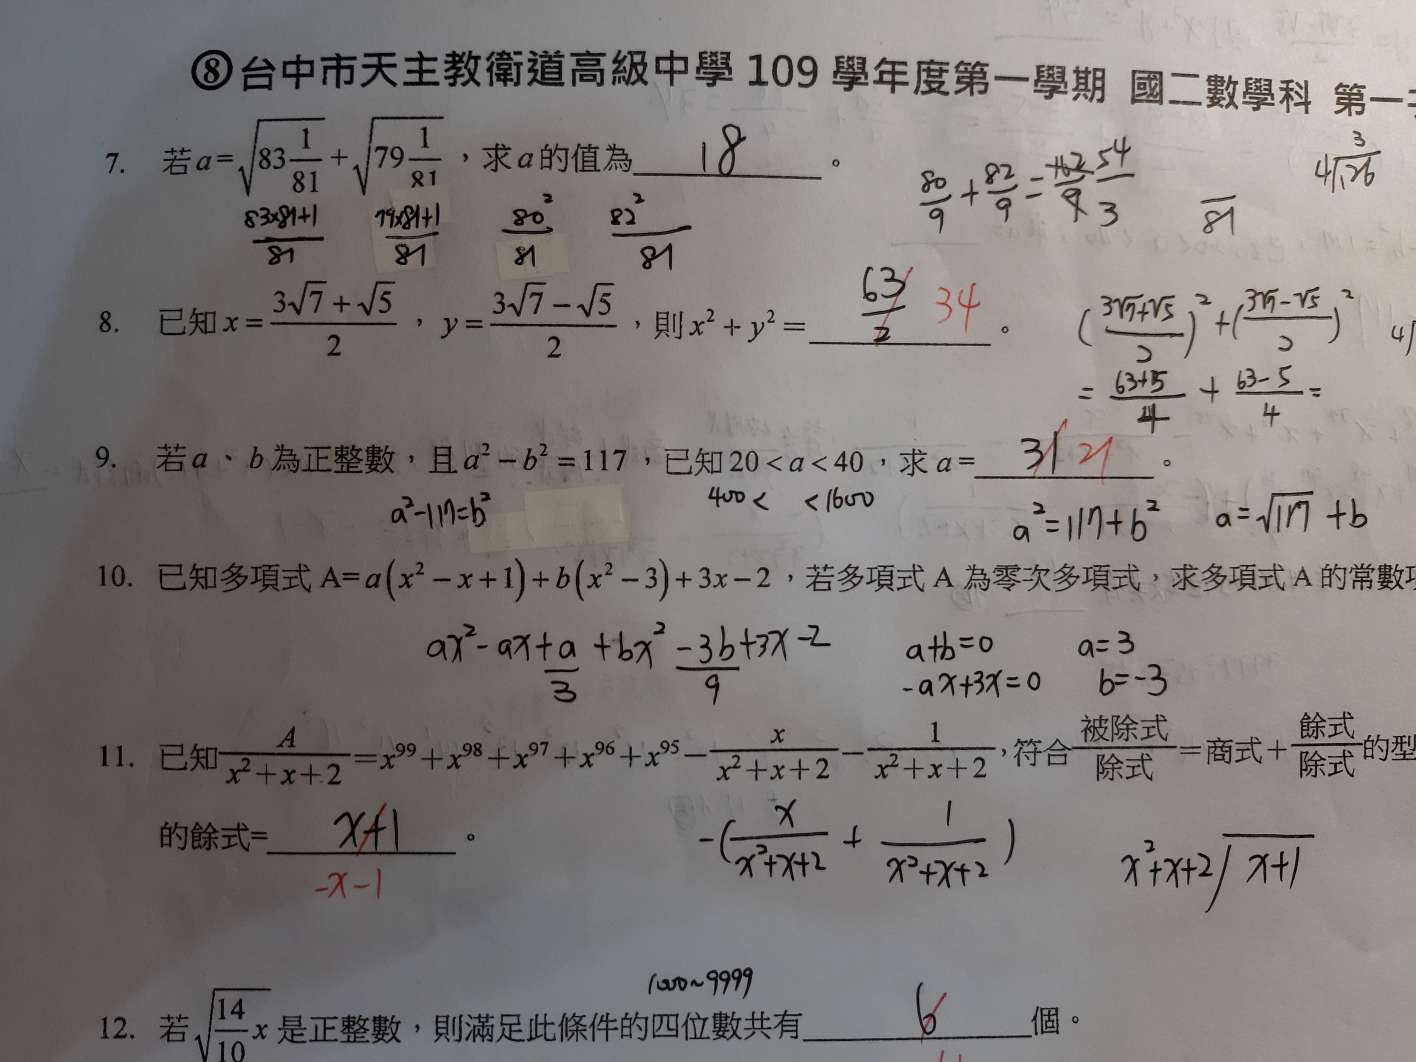 ⑧台中市天主教衛道高級中學 109 學年度第一學期 國二數學科 第一
7. 若 a = √(83 1/81) + √(79 1/81),求 a 的值為 18 。
80/9 + 82/9 = 162/9 54/3
3
4√126
81
83×81+1/81 79×81+1/81 80²/81 82²/81
8. 已知 x = (3√7 + √5)/2 , y = (3√7 − √5)/2 ,則 x² + y² = 63/2 34 。
((3√7+√5)/2)² + ((3√7−√5)/2)²
= (63+5)/4 + (63−5)/4 =
9. 若 a 、 b 為正整數,且 a² − b² = 117 ,已知 20 < a < 40,求 a = 31 21 。
a²−117=b² 400< <1600 a²=117+b² a=√117 +b
10. 已知多項式 A= a(x² − x + 1) + b(x² − 3) + 3x − 2 ,若多項式 A 為零次多項式,求多項式 A 的常數項
ax²−ax+a+bx²−3b+3x−2 a+b=0 a=3
3 9 −ax+3x=0 b=−3
11. 已知 A/(x²+x+2) = x⁹⁹ + x⁹⁸ + x⁹⁷ + x⁹⁶ + x⁹⁵ − x/(x²+x+2) − 1/(x²+x+2),符合 被除式/除式 = 商式 + 餘式/除式 的型
的餘式= x+1 。
−x−1
−(x/(x²+x+2) + 1/(x²+x+2)) x²+x+2√x+1
1000~9999
12. 若 √(14/10 x) 是正整數,則滿足此條件的四位數共有 6 個。